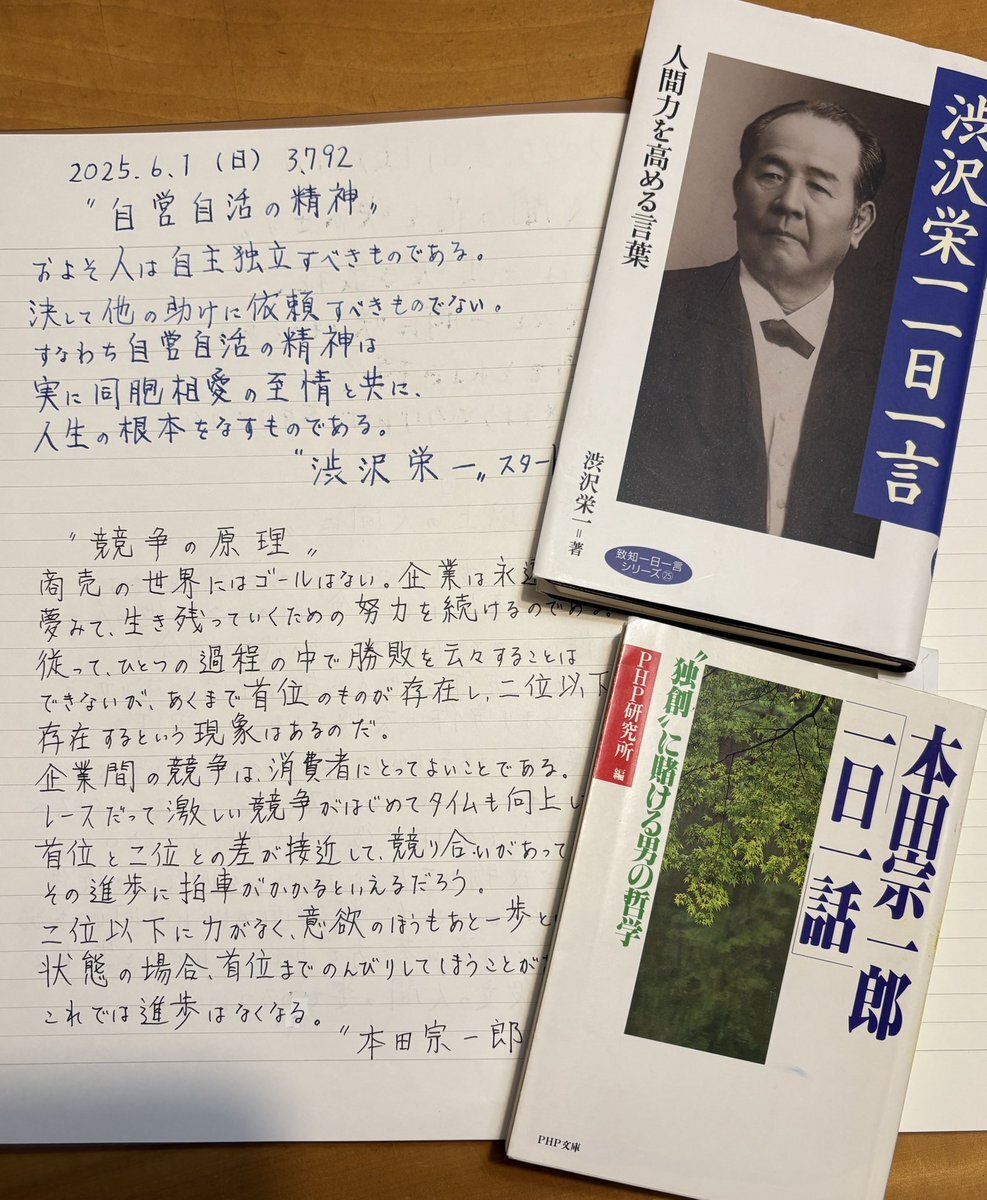 2025.6.1（日） 3,792
〝自営自活の精神〟
およそ人は自主独立すべきものである。
決して他の助けに依頼すべきものでない。
すなわち自営自活の精神は
実に同胞相愛の至情と共に、
人生の根本をなすものである。
〝渋沢栄一〟スター
〝競争の原理〟
商売の世界にはゴールはない。企業は永
夢みて、生き残っていくための努力を続けるのである。
従って、ひとつの過程の中で勝敗を云々することは
できないが、あくまで首位のものが存在し、二位以下
存在するという現象はあるのだ。
企業間の競争は、消費者にとってよいことである。
レースだって激しい競争がはじめてタイムも向上し
首位と二位との差が接近して、競り合いがあって
その進歩に拍車がかかるといえるだろう。
二位以下に力がなく、意欲のほうもあと一歩と
状態の場合、首位までのんびりしてしまうことが
これでは進歩はなくなる。
〝本田宗一郎
渋沢栄一一日一言
人間力を高める言葉
渋沢栄一＝著
致知一日一言
シリーズ㉕
本田宗一郎
「一日一話」
〝独創〟に賭ける男の哲学
PHP研究所 編
PHP文庫